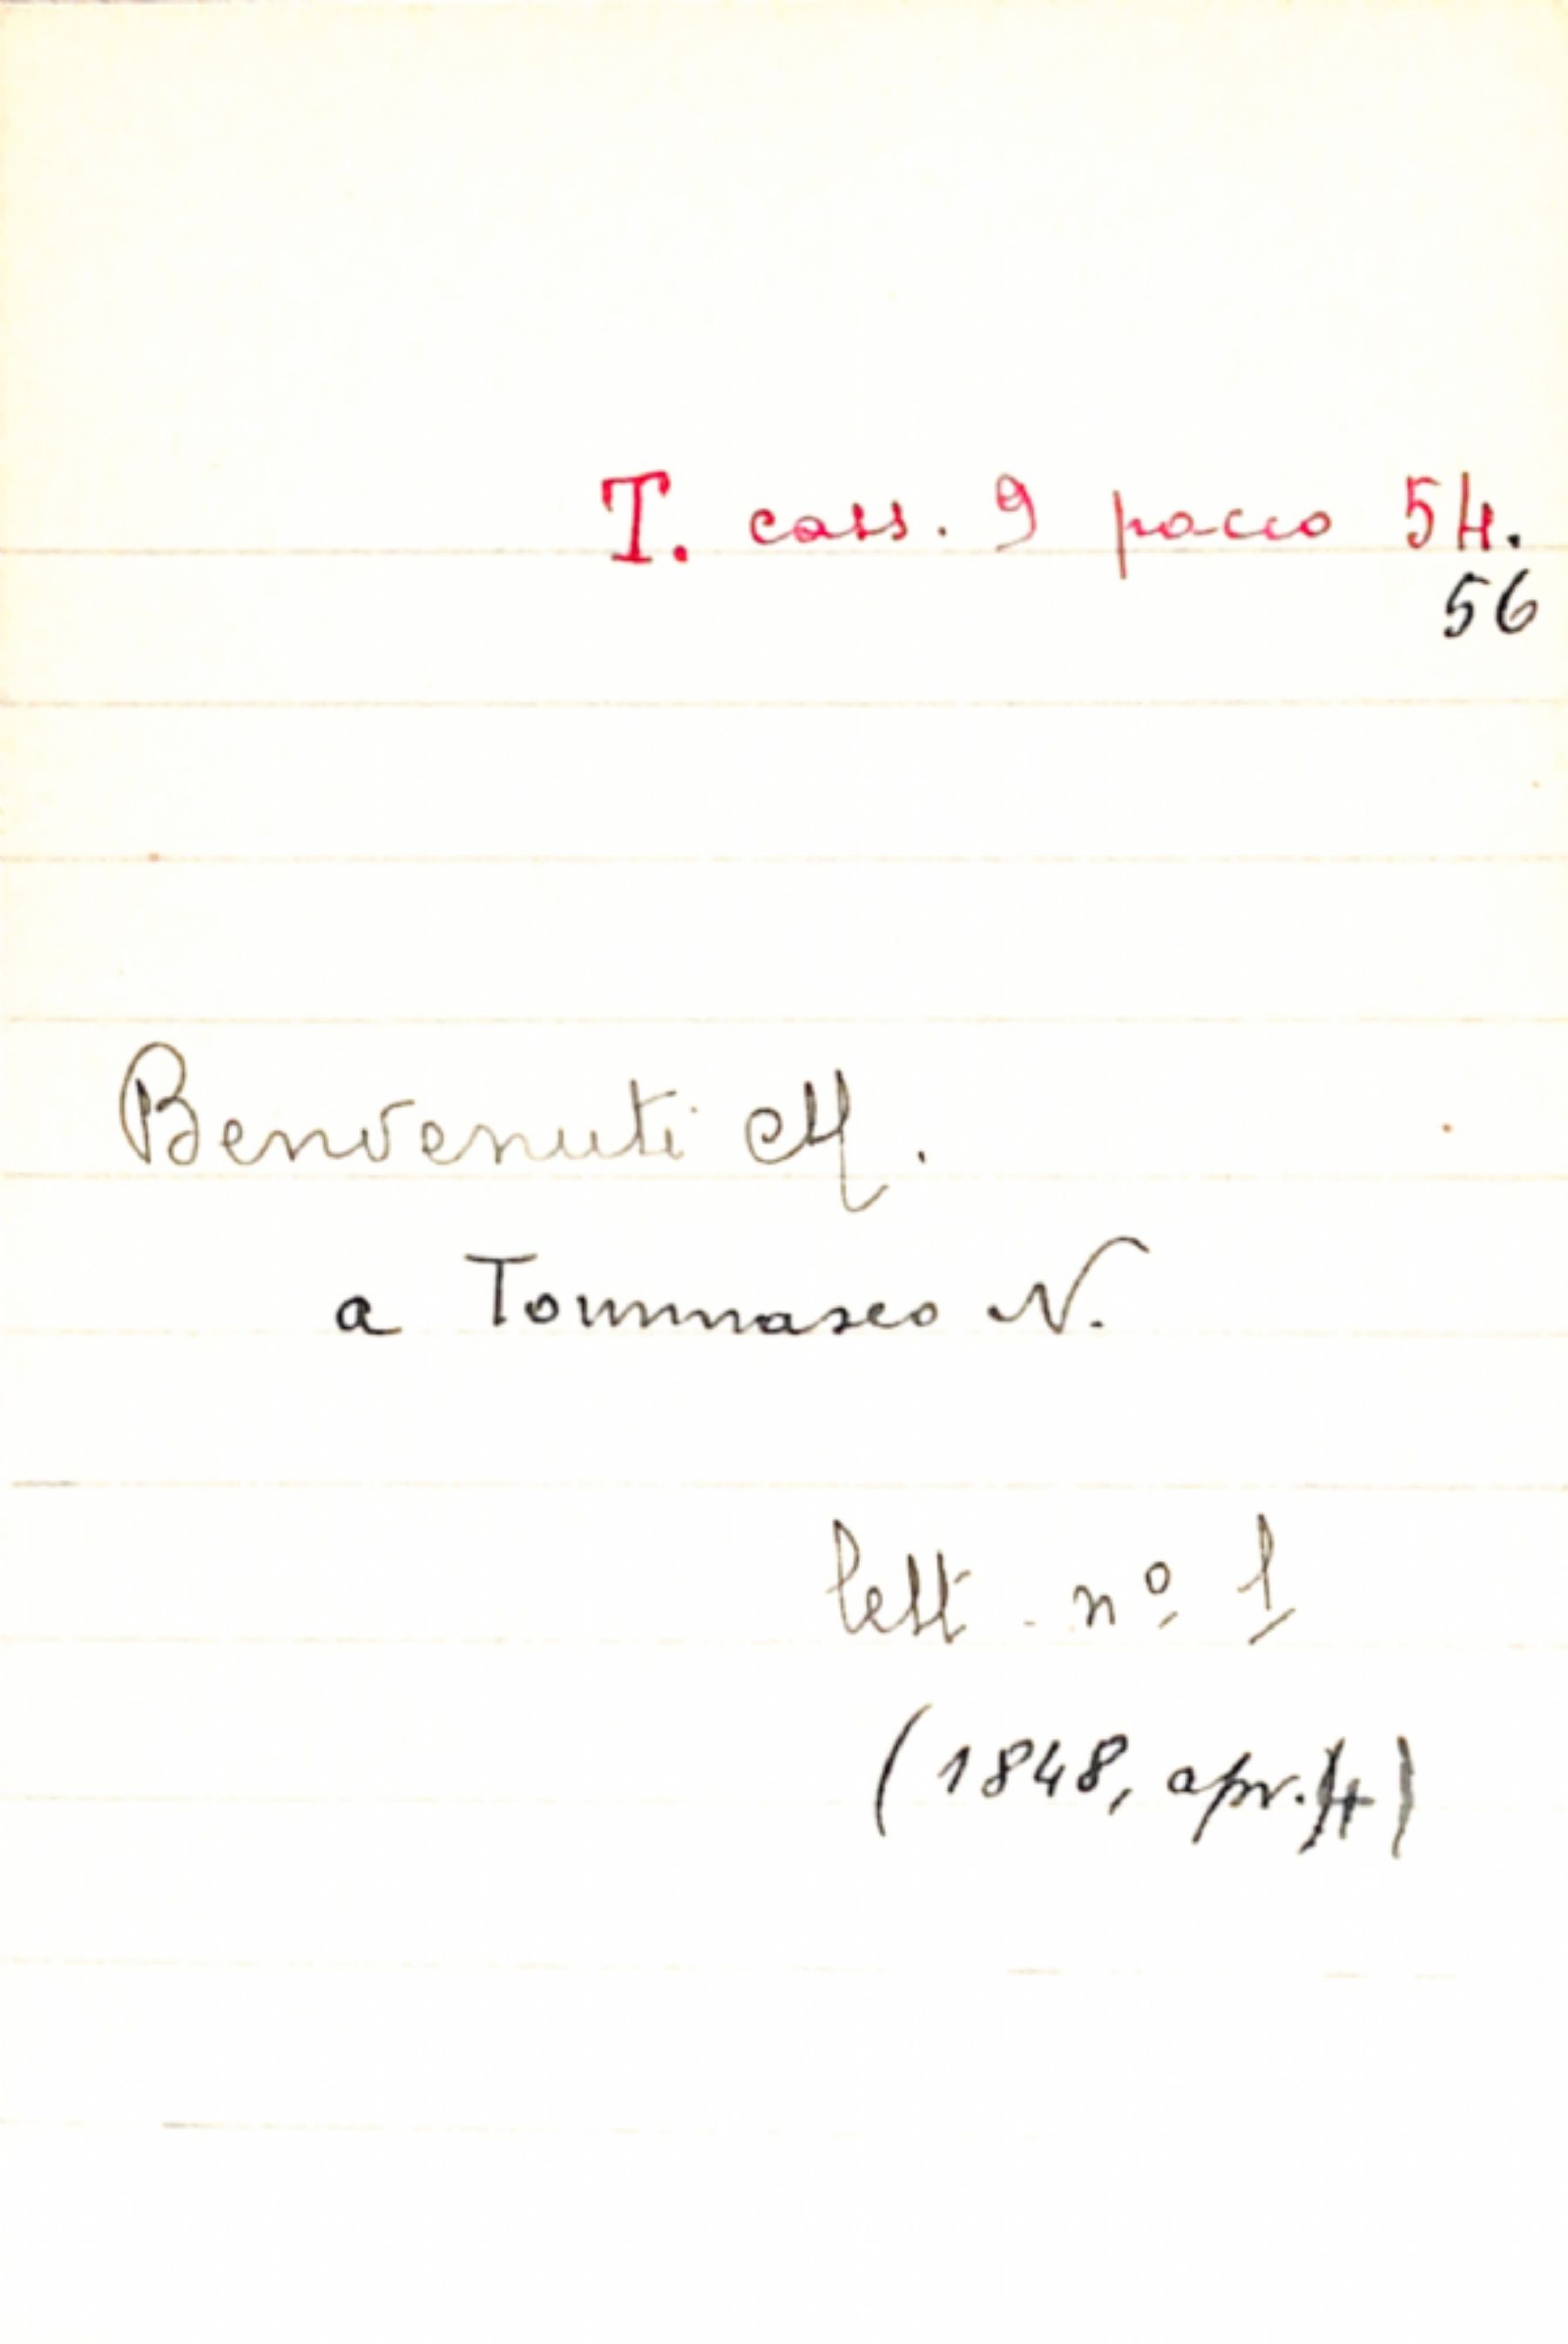 T. cass. 9 pacco 54.
56
Benvenuti M.
a Tommaseo N.
lett. nº 1
(1848, apr. 4)